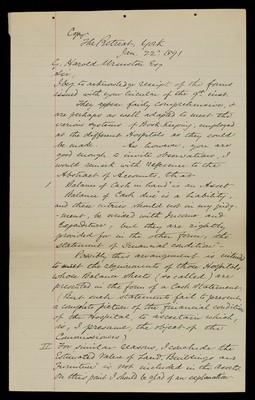 Copy.
The Retreat, York
Jan. 22nd 1891
G. Harold Urmston Esq
Sir,
I beg to acknowledge receipt of the forms
issued with your circular of the 9th inst.
They appear fairly comprehensive, &
are perhaps as well adapted to meet the
various systems of Book-keeping, employed
at the different Hospitals as they could
be made. As however, you are
good enough to invite observations, I
would remark with reference to the
Abstract of Accounts, that
1 Balance of Cash in hand is an Asset
Balance of Cash due is a liability,
and these entries should not in my judg-
-ment, be mixed with Income and
Expenditure, but they are rightly
provided for in the other form, the
Statement of Financial condition.
Possibly this arrangement is intended
to meet the requirements of those Hospitals
whose Balance sheets, (so called) are
presented in the form of a Cash Statement,
(But such statements fail to present
a complete picture of the financial condition
of the Hospital, to ascertain which,
is, I presume, the object of the
Commissioners)
II For similar reasons, I conclude the
Estimated Value of Land, Buildings and
Furniture is not included in the assets.
On this point I should be glad of an explanation